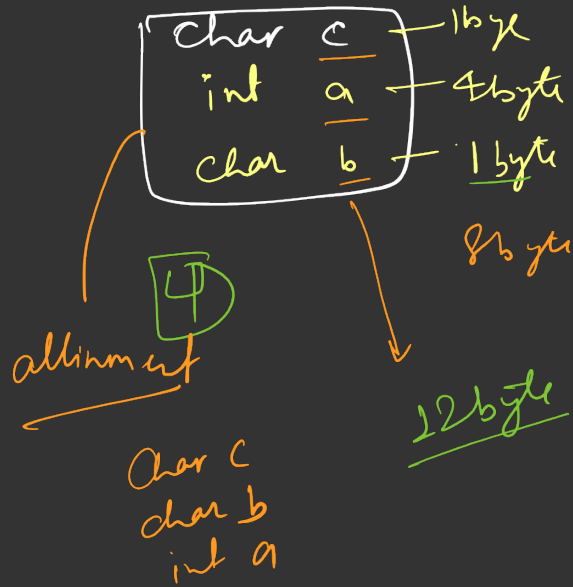 char c - 1bye
int a - 4byte
char b - 1 byte
8byte
4
allinment
12byte
char c
char b
int a